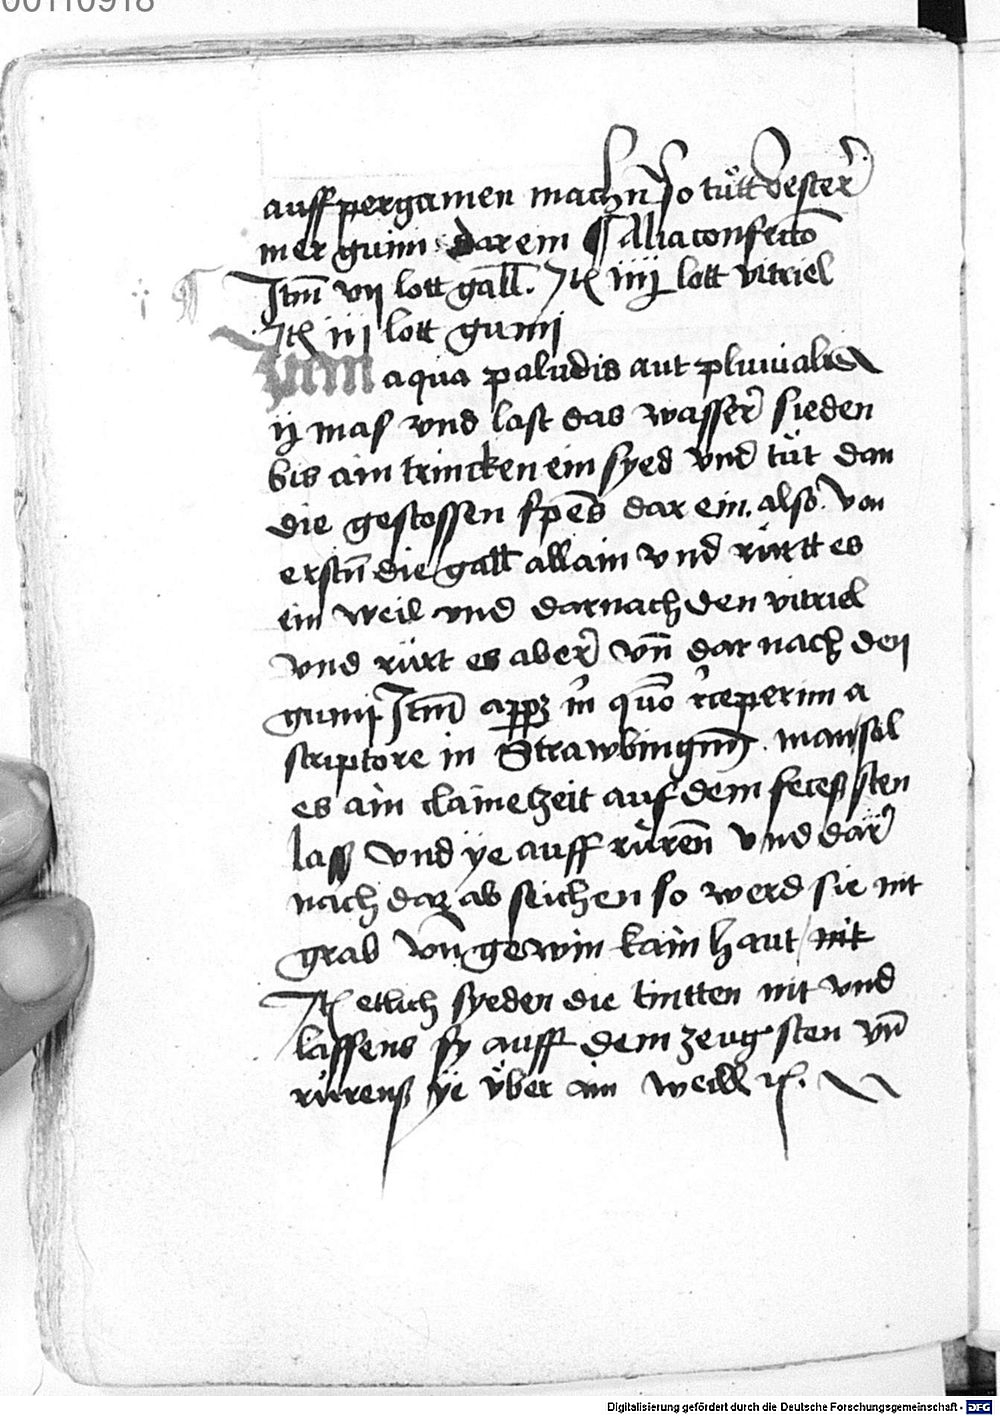 00110918
auff pergamen machn̄ so tu̇tt dester
mer gumi darein ¶ Alia confectō
Itm̄ vij lott gall. Itē iiij lott vitriel
Itē iij lott gumi
aqua paludis aut pluuialis
ij mas vnd last das wasser sieden
bis ain trincken ein syed vnd tu̇t dan
die gestossen spēs dar ein. also von
erstn̄ die gall allain vnd ru̇rtt es
ein weil vnd darnach den vitriel
vnd ru̇rt es aber vn̄ dar nach den
gumi Itm̄ in quō reperim a
scriptore in Strawbing man sol
es ain claine zeit auf dem sten
lass vnd ye auff ru̇ren̄ vnd dar
nach daz ab seichen so werd sie nit
grab vn̄ gewin kain haut / nit
Itē etlich syeden die tintten nit vnd
lassens sy auff dem zeug sten vn̄
ru̇renß ye u̇ber ain weill
Digitalisierung gefördert durch die Deutsche Forschungsgemeinschaft - DFG